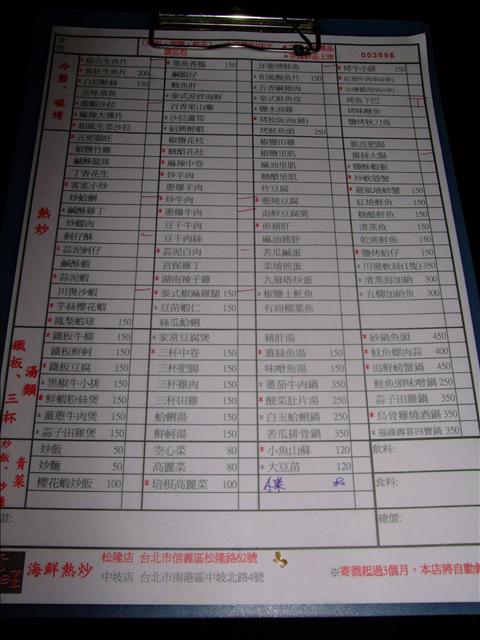 003896
冷盤、碳烤
*綜合生魚片
*魚肚生魚片 200
*白切軟絲 150
五味章魚
*龍蝦沙拉
*麻辣大薄片
*和風生菜沙拉
*墨魚香腸 150
鹹蜆仔
*鱈魚肝
*泰式涼拌海鮮
百香果山藥
*沙拉蘆筍
*紹興醉蝦
洋蔥燻鮭魚
*和風鮑魚片 150
*五香鹹豬肉
*泰式鮭魚皮
*鹽水油雞
*烤松阪肉(豬)
烤鮭魚頭 250
*烤牛小排 150
烤魚下巴
*烤味噌魚
鹽烤秋刀魚
熱炒
*五更腸旺
椒鹽竹雞
鹹酥龍珠
丁香花生
*客家小炒
炒蛤蜊
*鹹酥雞丁
炒螺肉
蚵仔酥
*蒜泥蚵仔
鹹酥蝦
*蒜泥蝦
川燙沙蝦
*芋絲櫻花蝦
*鳳梨蝦球 150
椒鹽花枝
*糖醋花枝
*麻辣中卷
*炒羊肉
蔥爆羊肉
*炒牛肉
*蔥爆牛肉
豆干牛肉
豆干肉絲
*蒜泥白肉
宮保雞丁
*湖南辣子雞
*泰式椒麻雞腿 150
*豆苗蝦仁 150
絲瓜蛤蜊
椒鹽田雞
椒鹽里肌
麻油里肌
糖醋里肌
炸豆腐
*蔥燒豆腐
*海鮮豆腐羹
*煎豬肝
麻油豬肝
苦瓜鹹蛋
菜埔煎蛋
九層塔炒蛋
*椒鹽土魠魚
有卵柳葉魚
脆皮肥腸
薑絲大腸
*鹽酥蝦猴
*炒軟殼蟹
*避風塘螃蟹 150
紅燒鮮魚 150
糖醋鮮魚 150
清蒸魚 150
乾煎鮮魚 150
*鹽烤蛤仔 150
*川燙軟絲(1隻) 350
*清蒸海加納 300
*五柳加納魚 300
鐵板、三杯
湯類
*鐵板牛柳 150
鐵板鮮蚵 150
*鐵板豆腐 150
*黑椒牛小排 150
*鮮蝦粉絲煲 150
*薑蔥牛肉煲 150
*蒜子田雞煲 150
*家常豆腐煲 150
*三杯中卷 150
*三杯肥腸 150
三杯雞肉 150
三杯田雞 150
蛤蜊湯 150
鮮蚵湯 150
豬肝湯 150
*薑絲魚湯 150
味噌魚湯 150
*蕃茄牛肉鍋 350
*酸菜肚片湯 250
*白玉蛤蜊鍋 250
*苦瓜排骨鍋 350
*砂鍋魚頭 450
*魷魚螺肉蒜 400
*海鮮螃蟹鍋 450
鮭魚頭味噌鍋 250
蒜子田雞鍋 350
*烏骨雞燒酒鍋 350
*福祿壽喜四寶鍋 350
青菜
炒飯 50
炒麵 50
櫻花蝦炒飯 100
空心菜 80
高麗菜 80
*培根高麗菜 100
*小魚山蘇 120
*大豆苗 120
A菜
飲料:
食料:
註:
總價:
海鮮熱炒
松隆店 台北市信義區松隆路62號
中坡店 台北市南港區中坡北路4號
※寄酒起過3個月，本店將自動